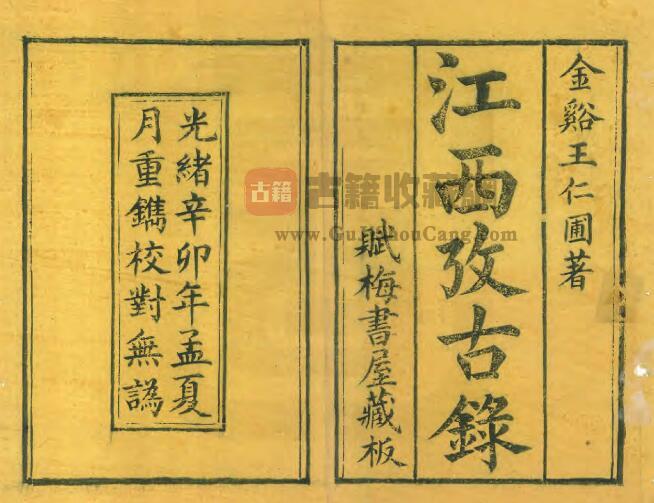 金谿王仁圃著
江西攷古錄
賦梅書屋藏板
光緒辛卯年孟夏
月重鐫校對無譌
古籍
古籍收藏网
www.GuJiShouCang.com